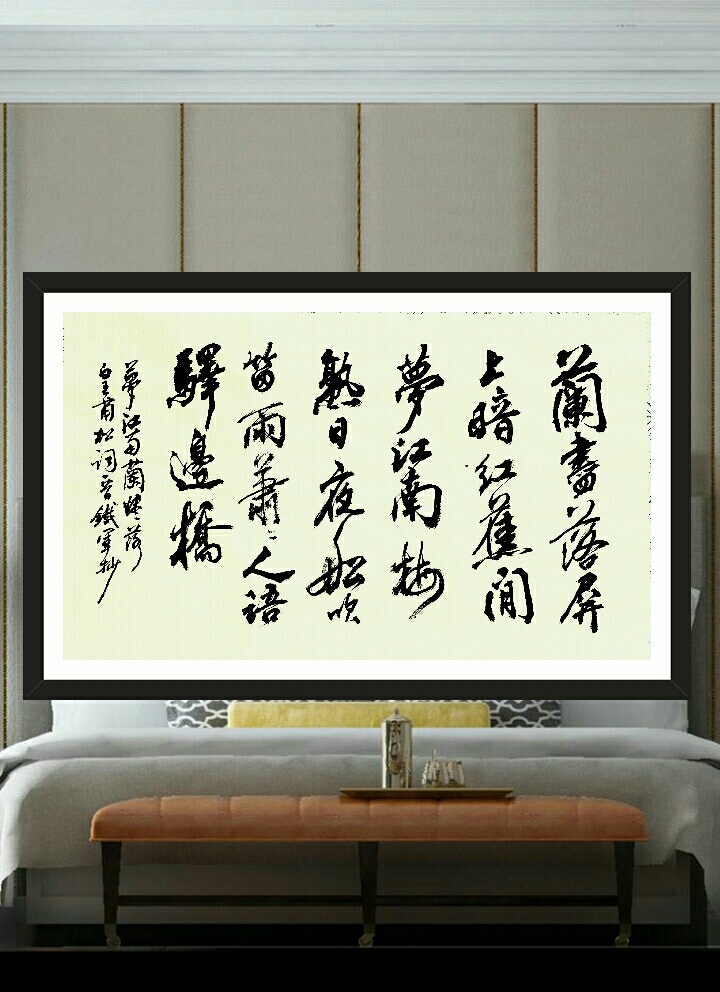 蘭盡落屏
上暗紅蕉閒
夢江南梅
熟日夜船吹
笛雨蕭〻人語
驛邊橋
夢江南蘭燼落
皇甫松詞晉鐵軍抄